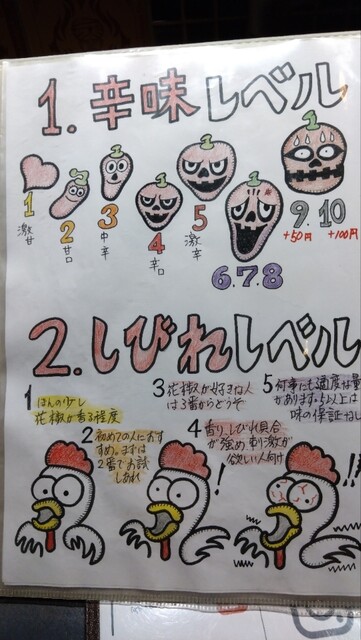 1. 辛味レベル
1
激甘
2
甘口
3
中辛
4
辛口
5
激辛
6.7.8
9. 10
+50円 +100円
2. しびれレベル
1 ほんの少し
花椒が香る程度
2 初めての人におす
すめ。まずは
2番でお試
しあれ
3 花椒が好きな人
は3番からどうぞ
4 香り、しびれ具合
が強め 刺激が
欲しい人向け
5 何事にも適度な量
があります。これ以上は
味の保証なし
!
!!